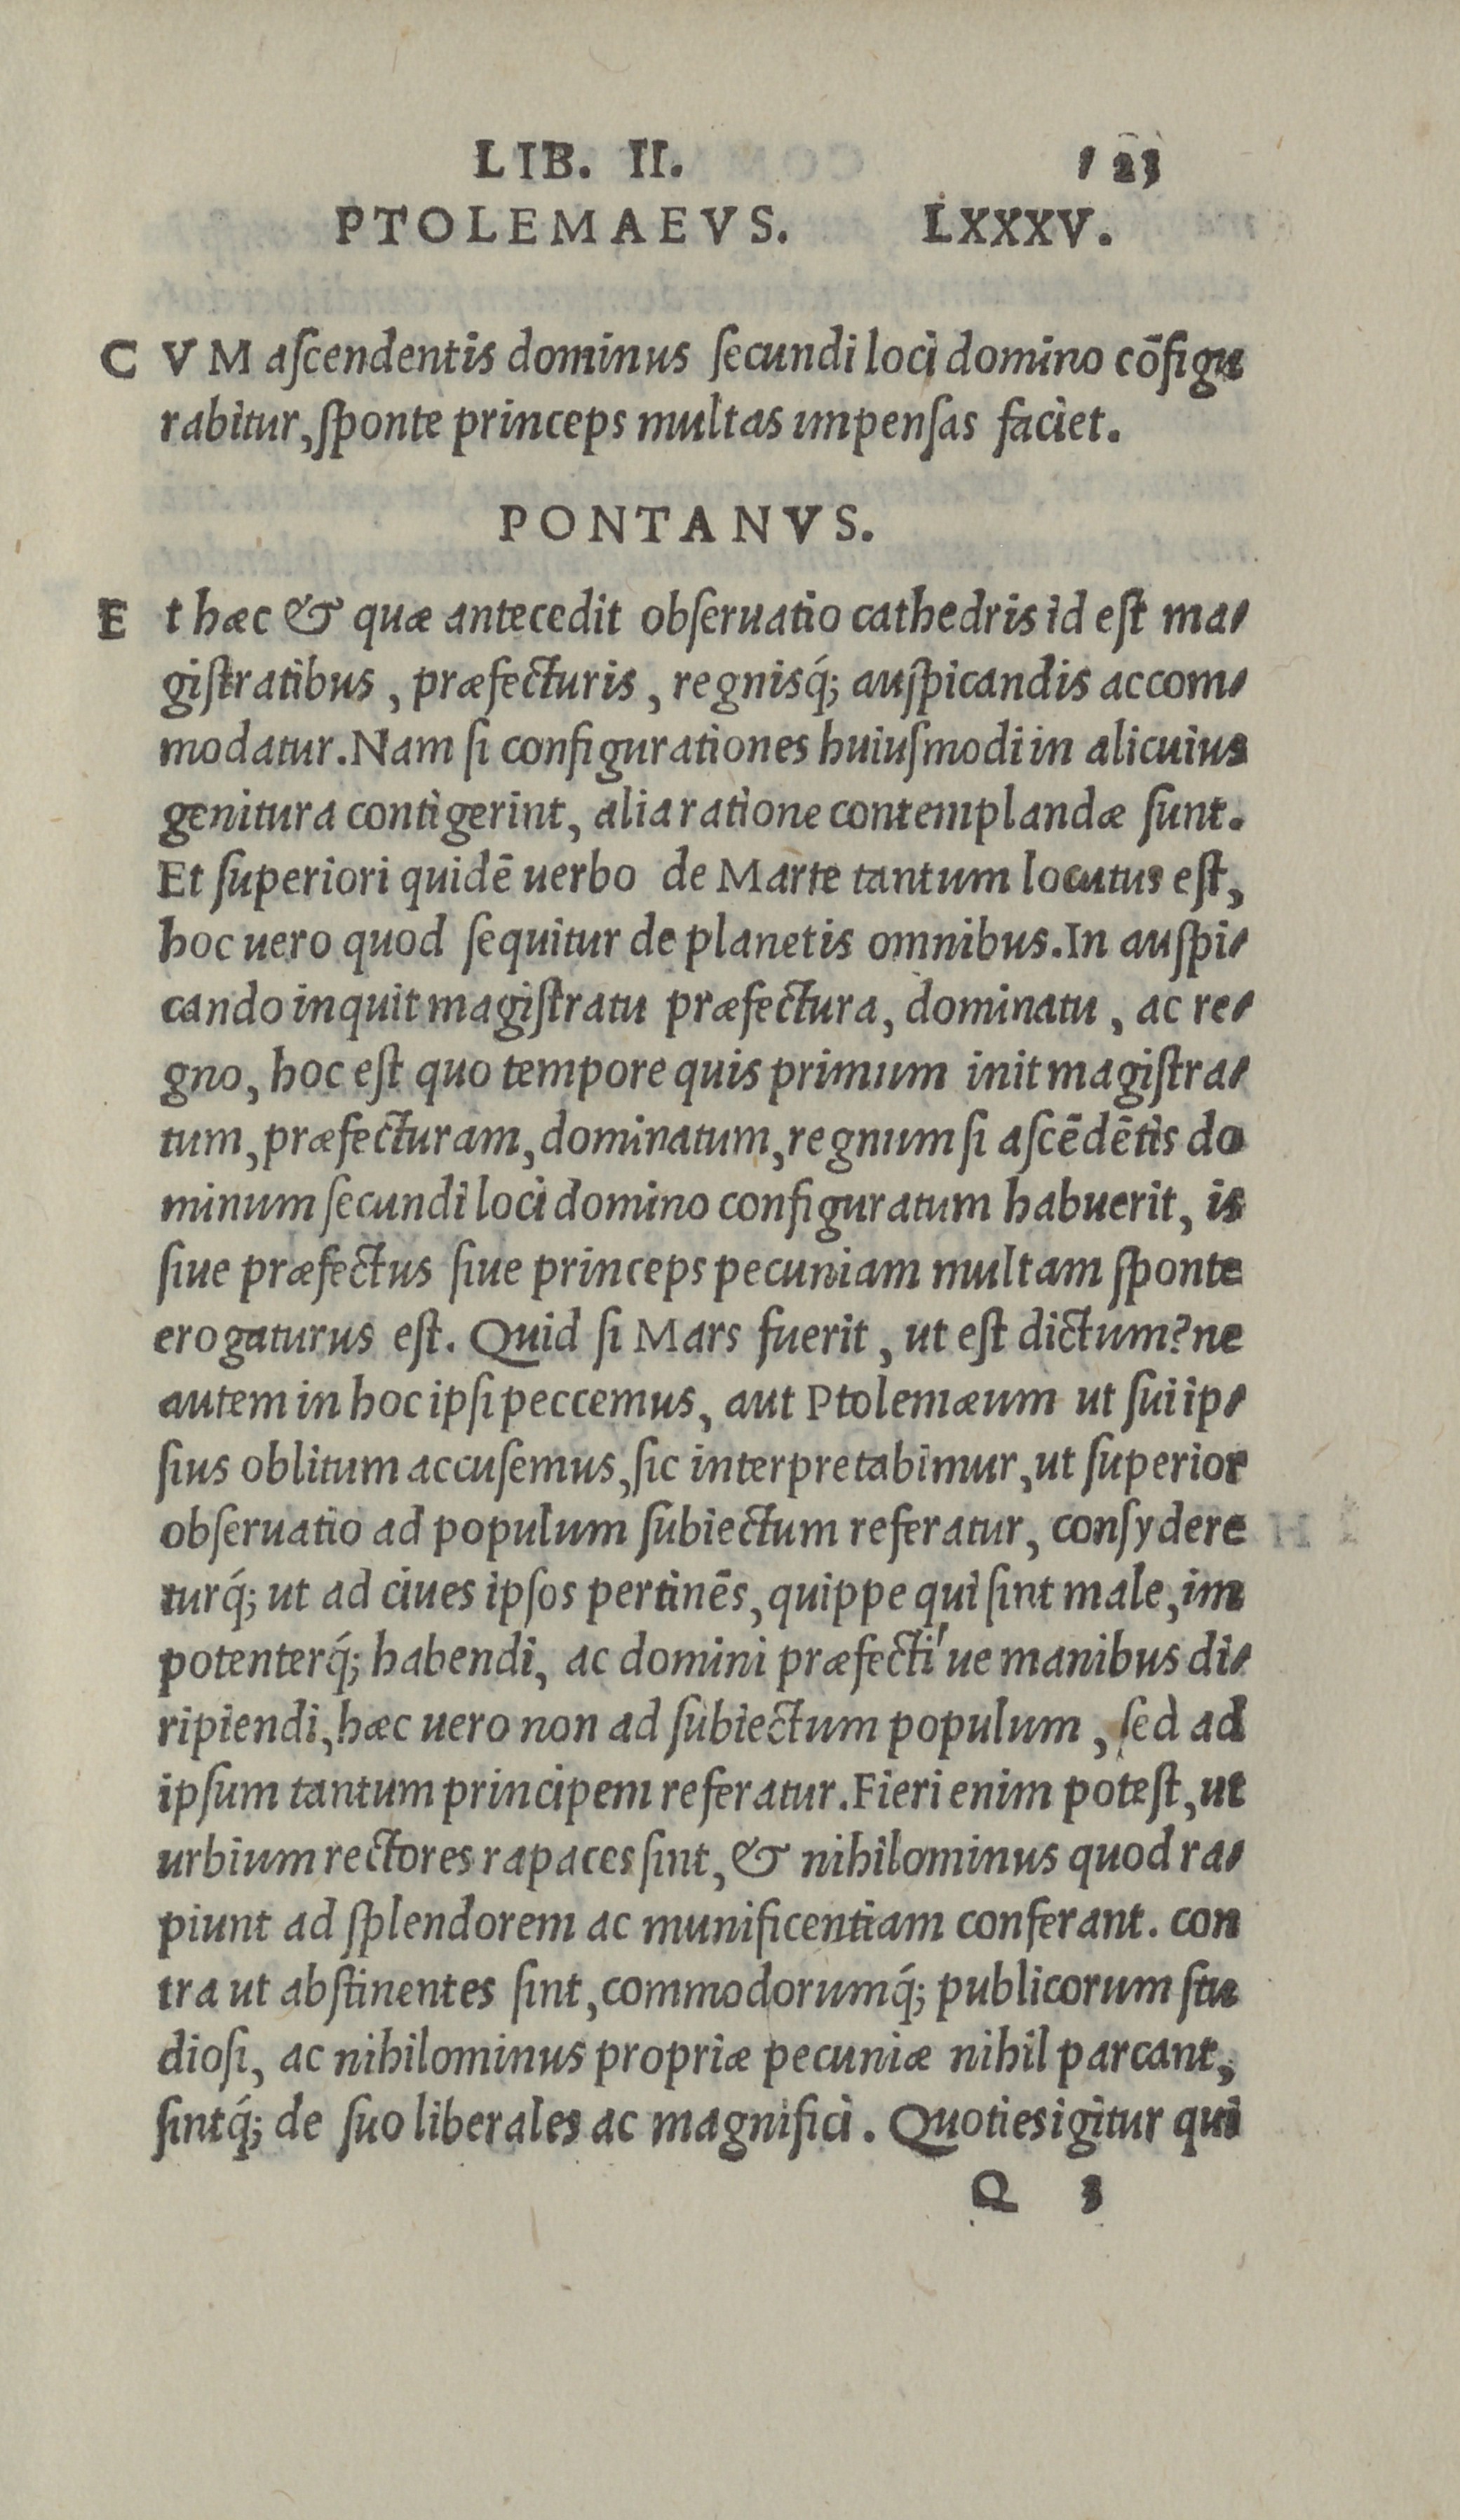 LIB. II. 123
PTOLEMAEVS. LXXXV.
C VM aſcendentis dominus ſecundi loci domino cōfigu
rabitur, ſponte princeps multas impenſas faciet.
PONTANVS.
E t hæc & quæ antecedit obſeruatio cathedris id eſt ma-
giſtratibus, præfecturis, regnisq́; auſpicandis accom-
modatur. Nam ſi configurationes huiuſmodi in alicuius
genitura contigerint, alia ratione contemplandæ ſunt.
Et ſuperiori quidē uerbo de Marte tantum locutus eſt,
hoc uero quod ſequitur de planetis omnibus. In auſpi-
cando inquit magiſtratu præfectura, dominatu, ac re-
gno, hoc eſt quo tempore quis primum init magiſtra-
tum, præfecturam, dominatum, regnum ſi aſcēdētis do
minum ſecundi loci domino configuratum habuerit, is
ſiue præfectus ſiue princeps pecuniam multam ſponte
erogaturus eſt. Quid ſi Mars fuerit, ut eſt dictum? ne
autem in hoc ipſi peccemus, aut Ptolemæum ut ſui ip-
ſius oblitum accuſemus, ſic interpretabimur, ut ſuperior
obſeruatio ad populum ſubiectum referatur, conſydere
turq́; ut ad ciues ipſos pertinēs, quippe qui ſint male, im
potenterq́; habendi, ac domini præfecti'ue manibus di-
ripiendi, hæc uero non ad ſubiectum populum, ſed ad
ipſum tantum principem referatur. Fieri enim poteſt, ut
urbium rectores rapaces ſint, & nihilominus quod ra-
piunt ad ſplendorem ac munificentiam conferant. con
tra ut abſtinentes ſint, commodorumq́; publicorum ſtu
dioſi, ac nihilominus propriæ pecuniæ nihil parcant,
ſintq́; de ſuo liberales ac magnifici. Quoties igitur qui
Q 3